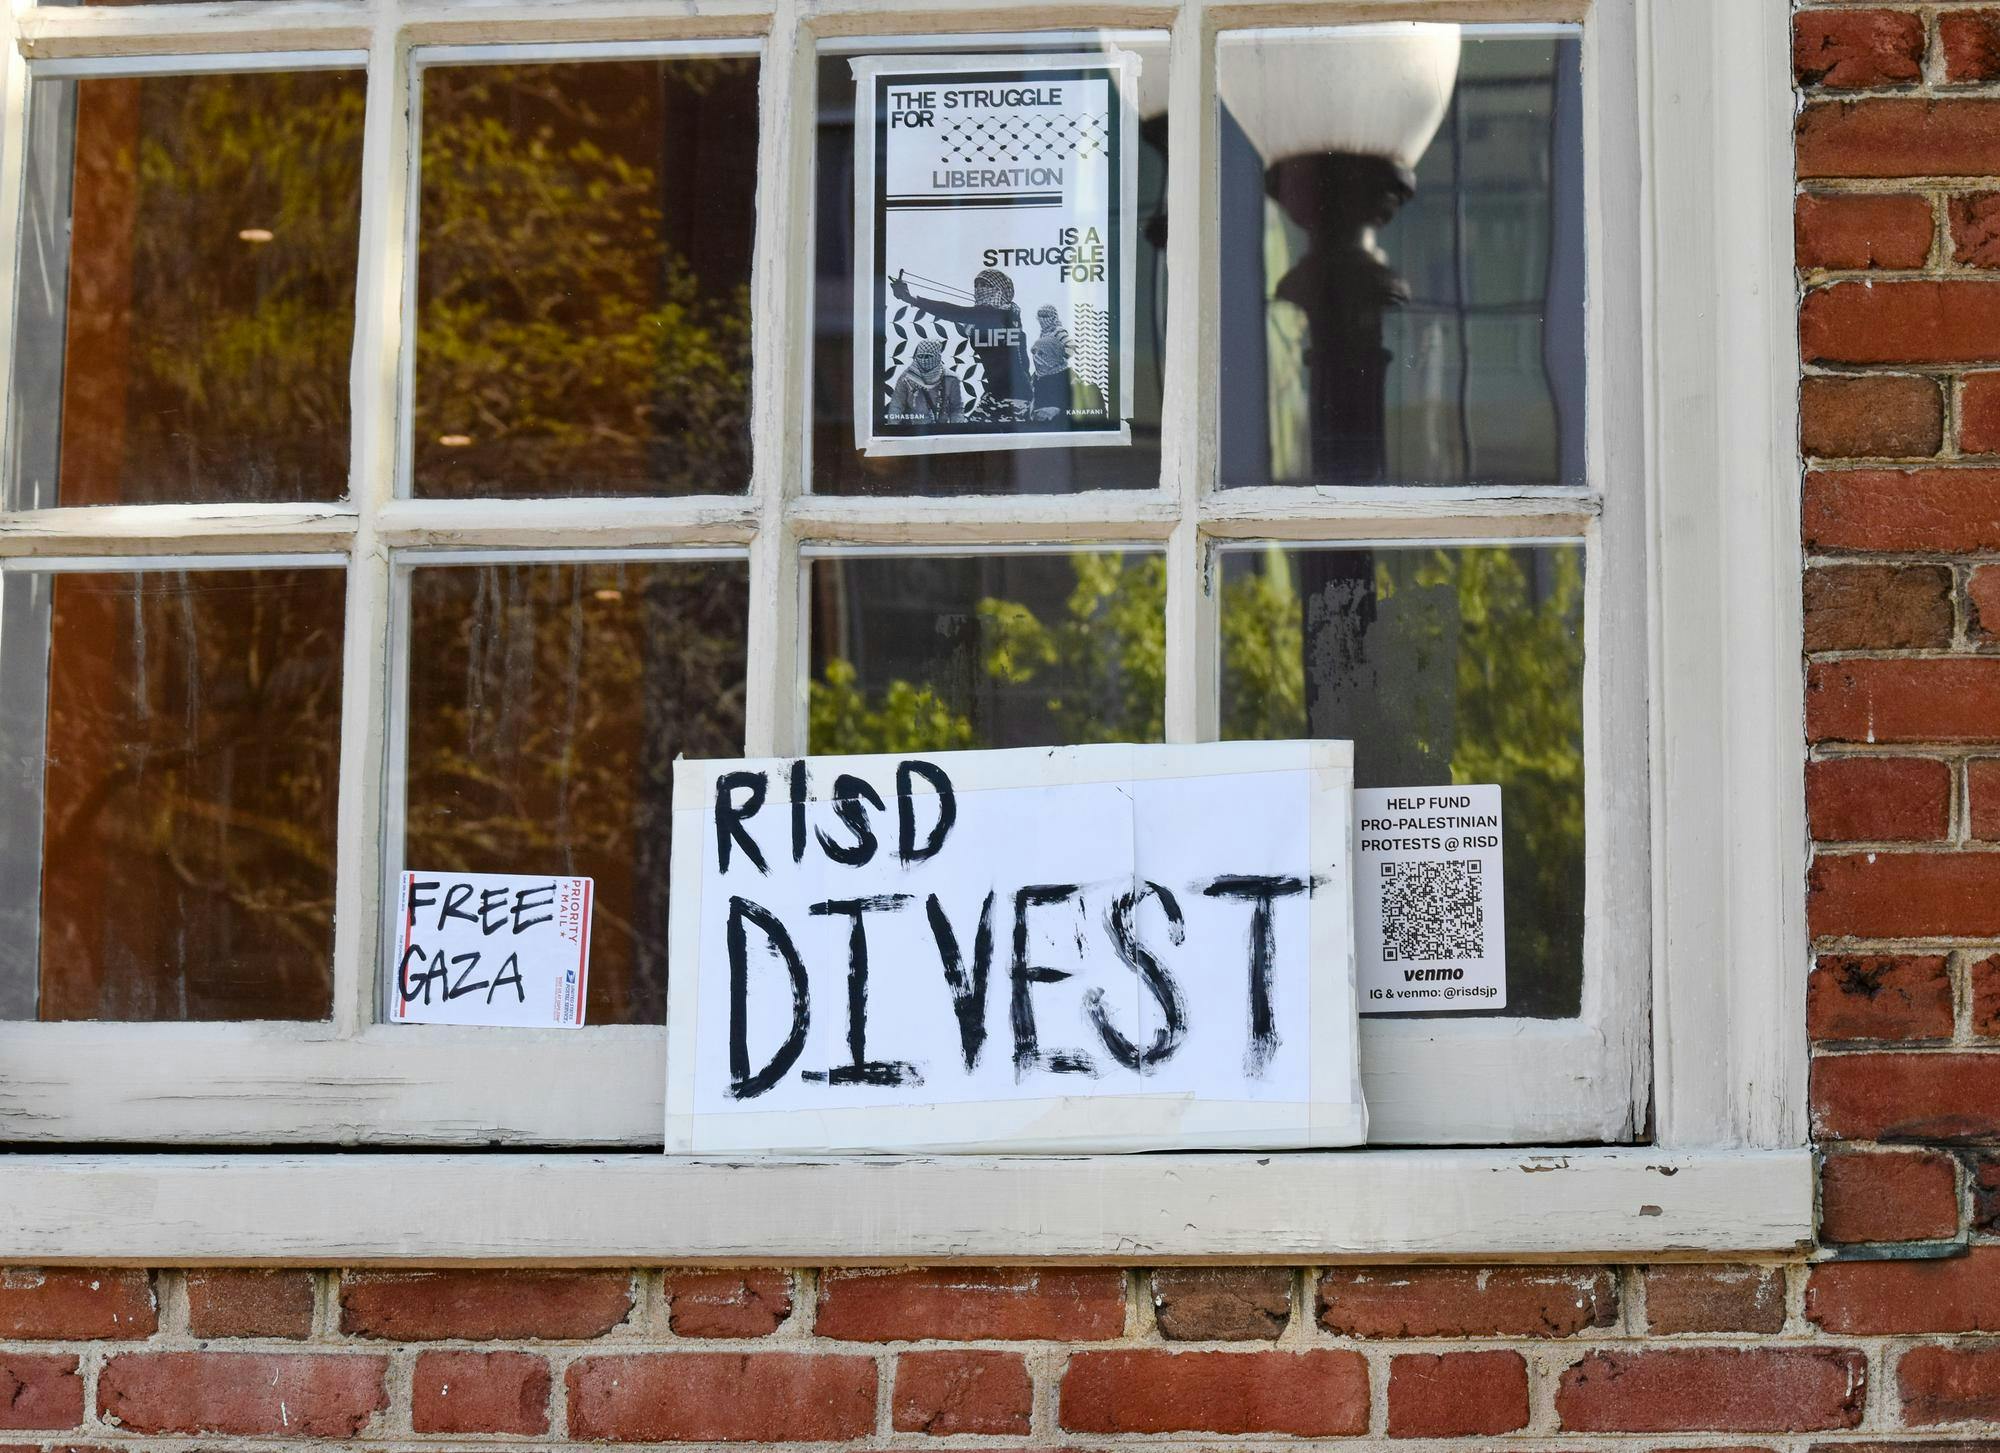 THE STRUGGLE
FOR
LIBERATION
IS A
STRUGGLE
FOR
LIFE
GHASSAN
KANAFANI
RISD
DIVEST
FREE
GAZA
PRIORITY
★ MAIL ★
UNITED STATES
POSTAL SERVICE
HELP FUND
PRO-PALESTINIAN
PROTESTS @ RISD
venmo
IG & venmo: @risdsjp